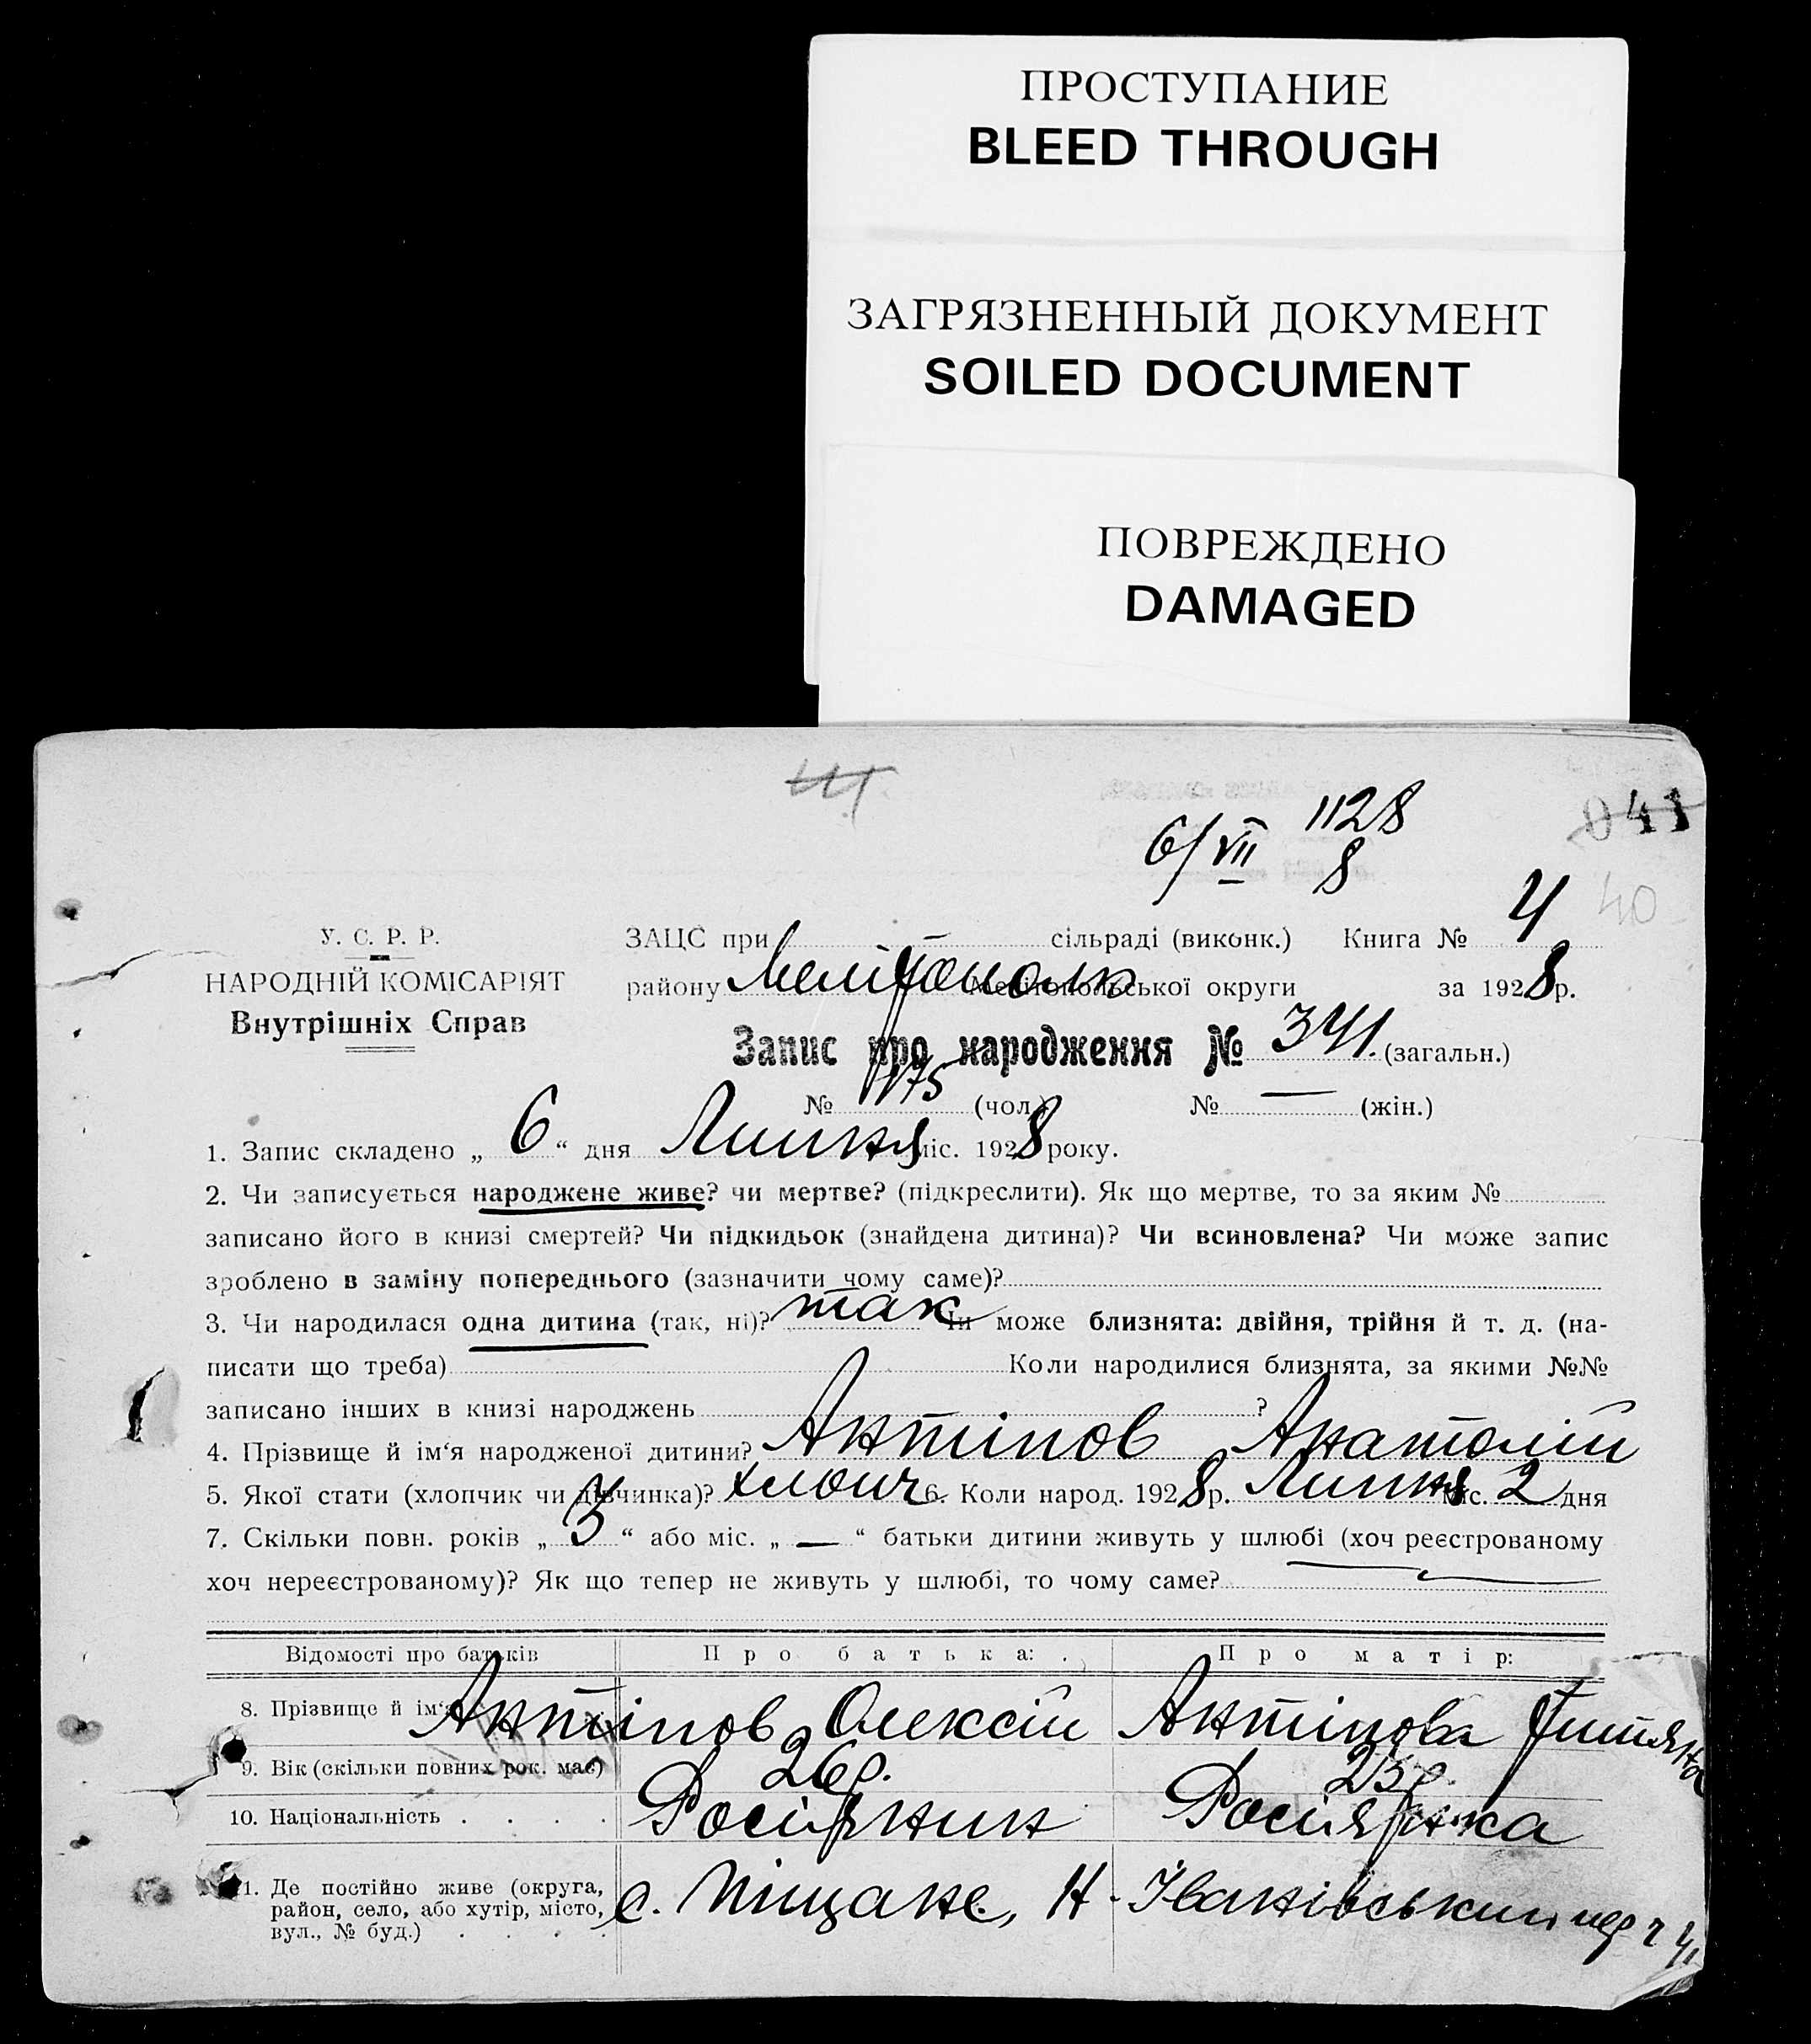 ПРОСТУПАНИЕ
BLEED THROUGH
ЗАГРЯЗНЕННЫЙ ДОКУМЕНТ
SOILED DOCUMENT
ПОВРЕЖДЕНО
DAMAGED
041
1128
6/VII 8
40
У. С. Р. Р.
НАРОДНІЙ КОМІСАРІЯТ
Внутрішніх Справ
ЗАЦС при сільраді (виконк.) Книга № 4
району Мелітополь Мелітопольської округи за 1928 р.
Запис про народження № 341. (загальн.)
№ 175 (чол.) № — (жін.)
1. Запис складено „ 6 “ дня Липня міс. 1928 року.
2. Чи записується народжене живе? чи мертве? (підкреслити). Як що мертве, то за яким №
записано його в книзі смертей? Чи підкидьок (знайдена дитина)? Чи всиновлена? Чи може запис
зроблено в заміну попереднього (зазначити чому саме)?
3. Чи народилася одна дитина (так, ні)? так Чи може близнята: двійня, трійня й т. д. (на-
писати що треба) Коли народилися близнята, за якими №№
записано інших в книзі народжень ?
4. Прізвище й ім‘я народженої дитини? Антіпов Анатолій
5. Якої стати (хлопчик чи дівчинка)? хлопч 6. Коли народ. 1928 р. Липня міс. 2 дня
7. Скільки повн. років „ 3 “ або міс. „ — “ батьки дитини живуть у шлюбі (хоч реєстрованому
хоч нереєстрованому)? Як що тепер не живуть у шлюбі, то чому саме?
Відомості про батьків Про батька: Про матір:
8. Прізвище й ім‘я Антіпов Олексій Антіпова
9. Вік (скільки повних рок. має) 26 р. 23 р.
10. Національність . . . . Росіянин Росіянка
11. Де постійно живе (округа,
район, село, або хутір, місто,
вул., № буд.) . . . . с. Піщане, Н-Іванівський пер